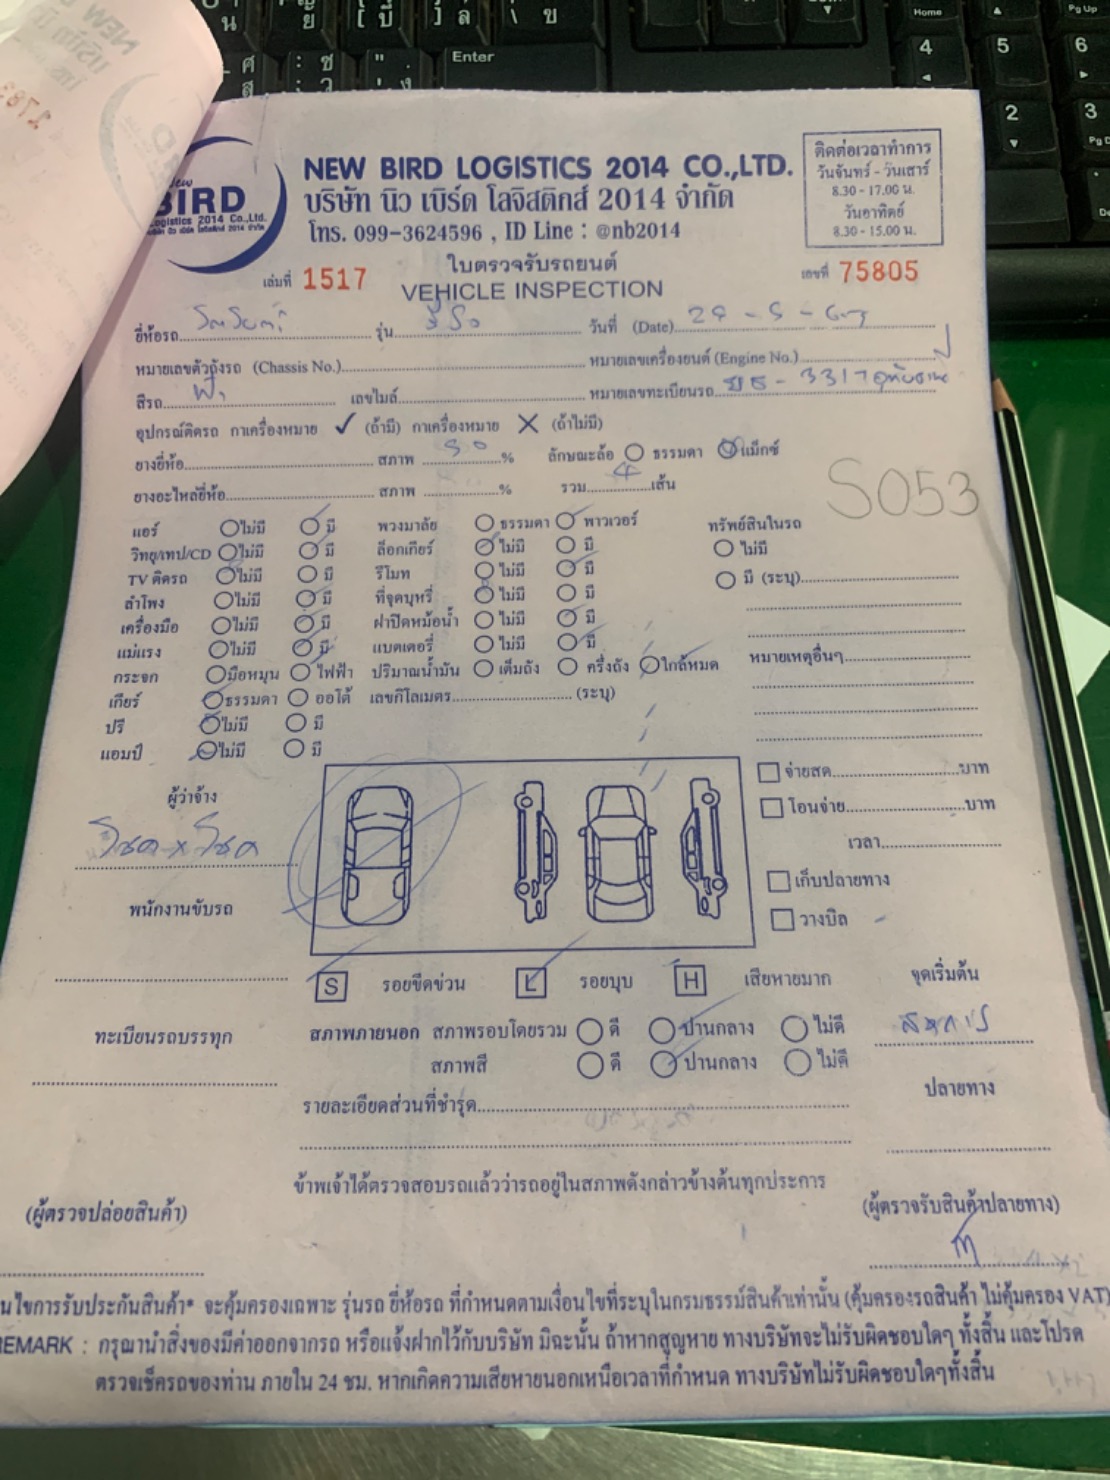 New
BIRD
Logistics 2014 Co.,Ltd.
NEW BIRD LOGISTICS 2014 CO.,LTD.
บริษัท นิว เบิร์ด โลจิสติกส์ 2014 จำกัด
โทร. 099-3624596 , ID Line : @nb2014
ติดต่อเวลาทำการ
วันจันทร์ - วันเสาร์
8.30 - 17.00 น.
วันอาทิตย์
8.30 - 15.00 น.
เล่มที่ 1517
ใบตรวจรับรถยนต์
VEHICLE INSPECTION
เลขที่ 75805
ยี่ห้อรถ รุ่น วันที่ (Date)
หมายเลขตัวถังรถ (Chassis No.) หมายเลขเครื่องยนต์ (Engine No.)
สีรถ ฟ้า เลขไมล์ หมายเลขทะเบียนรถ 3317
อุปกรณ์ติดรถ กาเครื่องหมาย ✓ (ถ้ามี) กาเครื่องหมาย ✕ (ถ้าไม่มี)
ยางยี่ห้อ สภาพ 50 % ลักษณะล้อ ธรรมดา แม็กซ์
ยางอะไหล่ยี่ห้อ สภาพ % รวม 4 เส้น
S053
แอร์ ไม่มี มี พวงมาลัย ธรรมดา พาวเวอร์ ทรัพย์สินในรถ
วิทยุ/เทป/CD ไม่มี มี ล็อกเกียร์ ไม่มี มี ไม่มี
TV ติดรถ ไม่มี มี รีโมท ไม่มี มี มี (ระบุ)
ลำโพง ไม่มี มี ที่จุดบุหรี่ ไม่มี มี
เครื่องมือ ไม่มี มี ฝาปิดหม้อน้ำ ไม่มี มี
แม่แรง ไม่มี มี แบตเตอรี่ ไม่มี มี หมายเหตุอื่นๆ
กระจก มือหมุน ไฟฟ้า ปริมาณน้ำมัน เต็มถัง ครึ่งถัง ใกล้หมด
เกียร์ ธรรมดา ออโต้ เลขกิโลเมตร (ระบุ)
ปรี ไม่มี มี
แอมป์ ไม่มี มี
จ่ายสด บาท
โอนจ่าย บาท
เวลา
เก็บปลายทาง
วางบิล
ผู้ว่าจ้าง
โชค x โชค
พนักงานขับรถ
S รอยขีดข่วน L รอยบุบ H เสียหายมาก
จุดเริ่มต้น
ทะเบียนรถบรรทุก
สภาพภายนอก สภาพรอบโดยรวม ดี ปานกลาง ไม่ดี
สภาพสี ดี ปานกลาง ไม่ดี
ปลายทาง
รายละเอียดส่วนที่ชำรุด
ข้าพเจ้าได้ตรวจสอบรถแล้วว่ารถอยู่ในสภาพดังกล่าวข้างต้นทุกประการ
(ผู้ตรวจปล่อยสินค้า) (ผู้ตรวจรับสินค้าปลายทาง)
นไขการรับประกันสินค้า* จะคุ้มครองเฉพาะ รุ่นรถ ยี่ห้อรถ ที่กำหนดตามเงื่อนไขที่ระบุในกรมธรรม์สินค้าเท่านั้น (คุ้มครองรถสินค้า ไม่คุ้มครอง VAT)
REMARK : กรุณานำสิ่งของมีค่าออกจากรถ หรือแจ้งฝากไว้กับบริษัท มิฉะนั้น ถ้าหากสูญหาย ทางบริษัทจะไม่รับผิดชอบใดๆ ทั้งสิ้น และโปรด
ตรวจเช็ครถของท่าน ภายใน 24 ชม. หากเกิดความเสียหายนอกเหนือเวลาที่กำหนด ทางบริษัทไม่รับผิดชอบใดๆทั้งสิ้น
Enter
Home
Pg Up
4
5
6
2
3